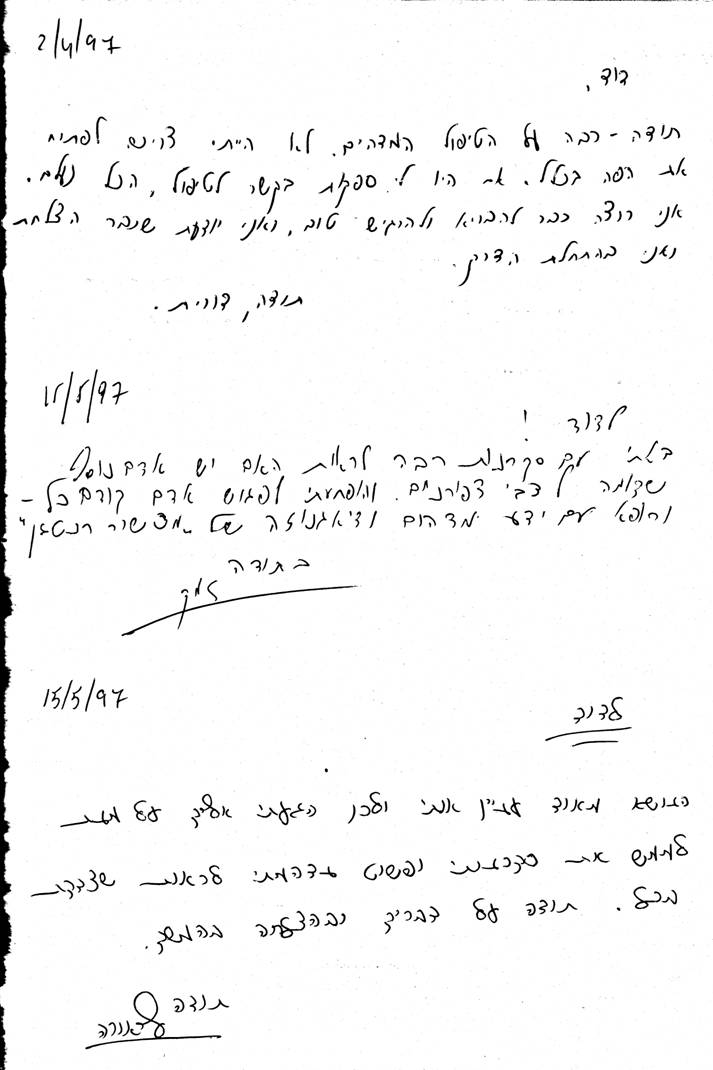 2/4/97
דוד,
תודה-רבה על הטיפול המדהים. לא הייתי צריכה לפתוח
את הפה בכלל. אם היו לי ספקות בקשר לטיפול, הכל נעלם.
אני רוצה כבר להבריא ולהרגיש טוב, ואני יודעת שכבר הצלחת
ואני בהתחלת הדרך.
תודה, דורית.
15/5/97
לדוד!
באתי עם סקרנות רבה לראות האם יש אדם נוסף
שדומה לצבי ציפורניים. והופתעתי לפגוש אדם קודם כל-
ורופא עם ידע מדהים ודיאגנוזה של "מכשיר רנטגן"
בתודה
15/5/97
לדוד
הנושא מאוד עניין אותי ולכן הגעתי אליך על מנת
לממש את סקרנותי ופשוט נדהמתי לראות שצדקת
בכל. תודה על דבריך ובהצלחה בהמשך.
תודה